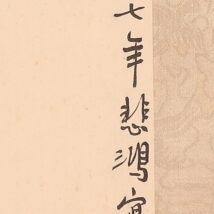 七年悲鴻